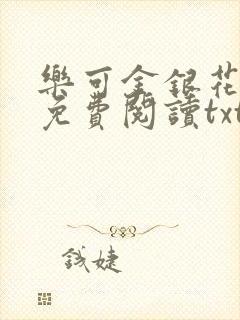 樂可金銀花
免費閱讀txt
錢婕